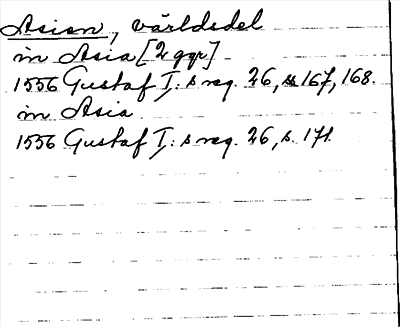 Asien, världsdel
in Asia [2 ggr]
1556 Gustaf I:s reg. 26, ss 167, 168.
in Asia
1556 Gustaf I:s reg. 26, s. 171.